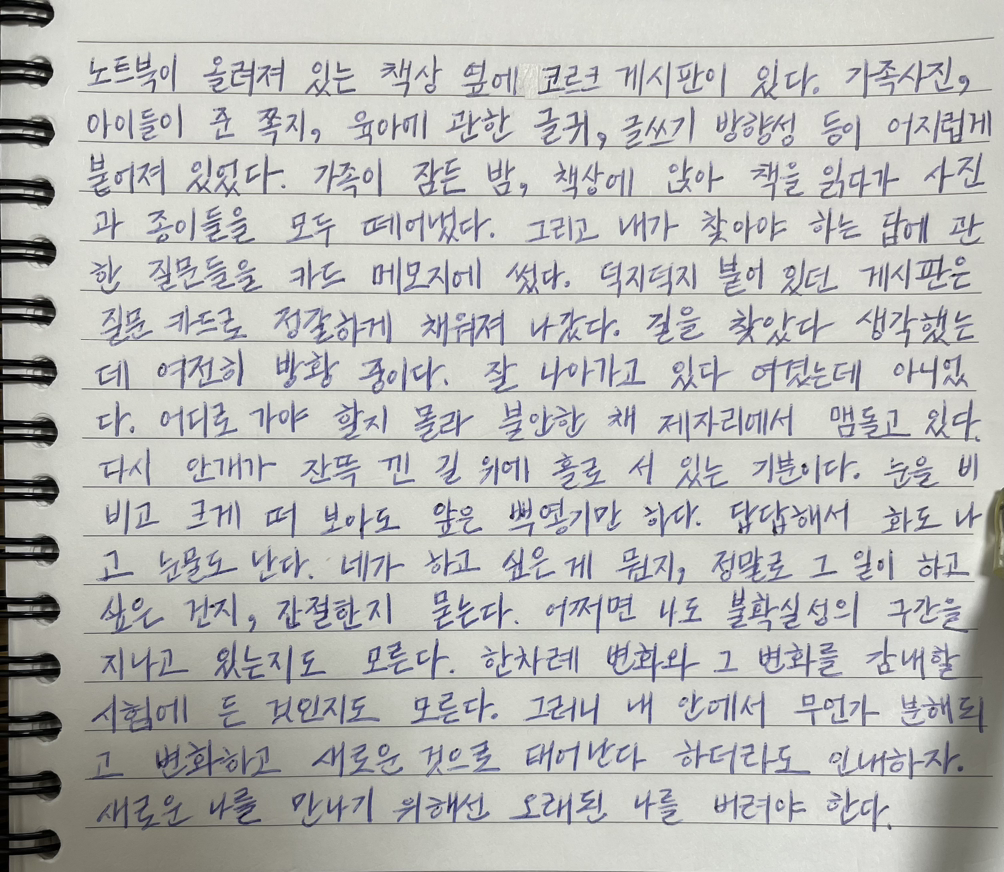 노트북이 올려져 있는 책상 옆에 코르크 게시판이 있다. 가족사진,
아이들이 준 쪽지, 육아에 관한 글귀, 글쓰기 방향성 등이 어지럽게
붙어져 있었다. 가족이 잠든 밤, 책상에 앉아 책을 읽다가 사진
과 종이들을 모두 떼어냈다. 그리고 내가 찾아야 하는 답에 관
한 질문들을 카드 메모지에 썼다. 덕지덕지 붙어 있던 게시판은
질문 카드로 정갈하게 채워져 나갔다. 길을 찾았다 생각했는
데 여전히 방황 중이다. 잘 나아가고 있다 여겼는데 아니었
다. 어디로 가야 할지 몰라 불안한 채 제자리에서 맴돌고 있다.
다시 안개가 잔뜩 낀 길 위에 홀로 서 있는 기분이다. 눈을 비
비고 크게 떠 보아도 앞은 뿌옇기만 하다. 답답해서 화도 나
고 눈물도 난다. 네가 하고 싶은 게 뭔지, 정말로 그 일이 하고
싶은 건지, 간절한지 묻는다. 어쩌면 나도 불확실성의 구간을
지나고 있는지도 모른다. 한차례 변화와 그 변화를 감내할
시험에 든 것인지도 모른다. 그러니 내 안에서 무언가 분해되
고 변화하고 새로운 것으로 태어난다 하더라도 인내하자.
새로운 나를 만나기 위해선 오래된 나를 버려야 한다.